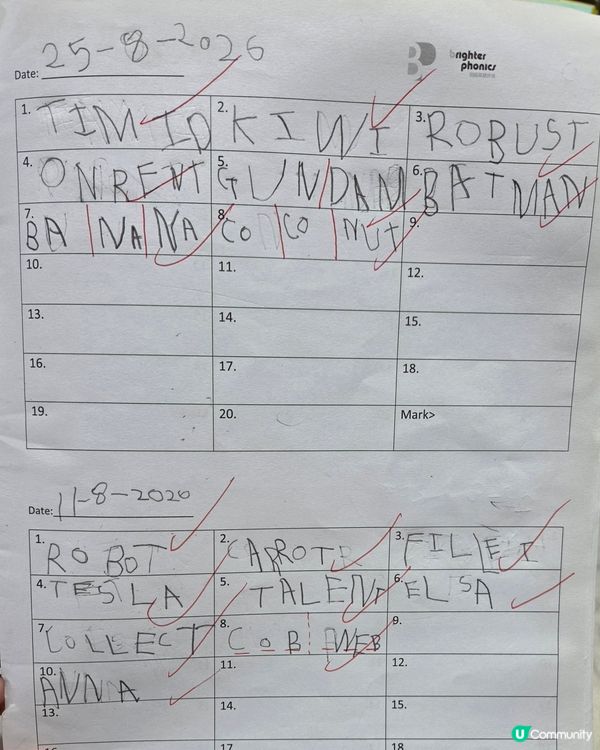 Date: 25-8-2026
brighter
phonics
1. TIMID 2. KIWI 3. ROBUST
4. ONRENT 5. GUN DAM 6. BATMAN
7. BA NA NA 8. CO CO NUT 9.
10. 11. 12.
13. 14. 15.
16. 17. 18.
19. 20. Mark>
Date: 11-8-2020
1. ROBOT 2. CARROT 3. FILET
4. TESLA 5. TALENT 6. ELSA
7. COLLECT 8. COB WEB 9.
10. ANNA 11. 12.
13. 14. 15.
17 18
U Community